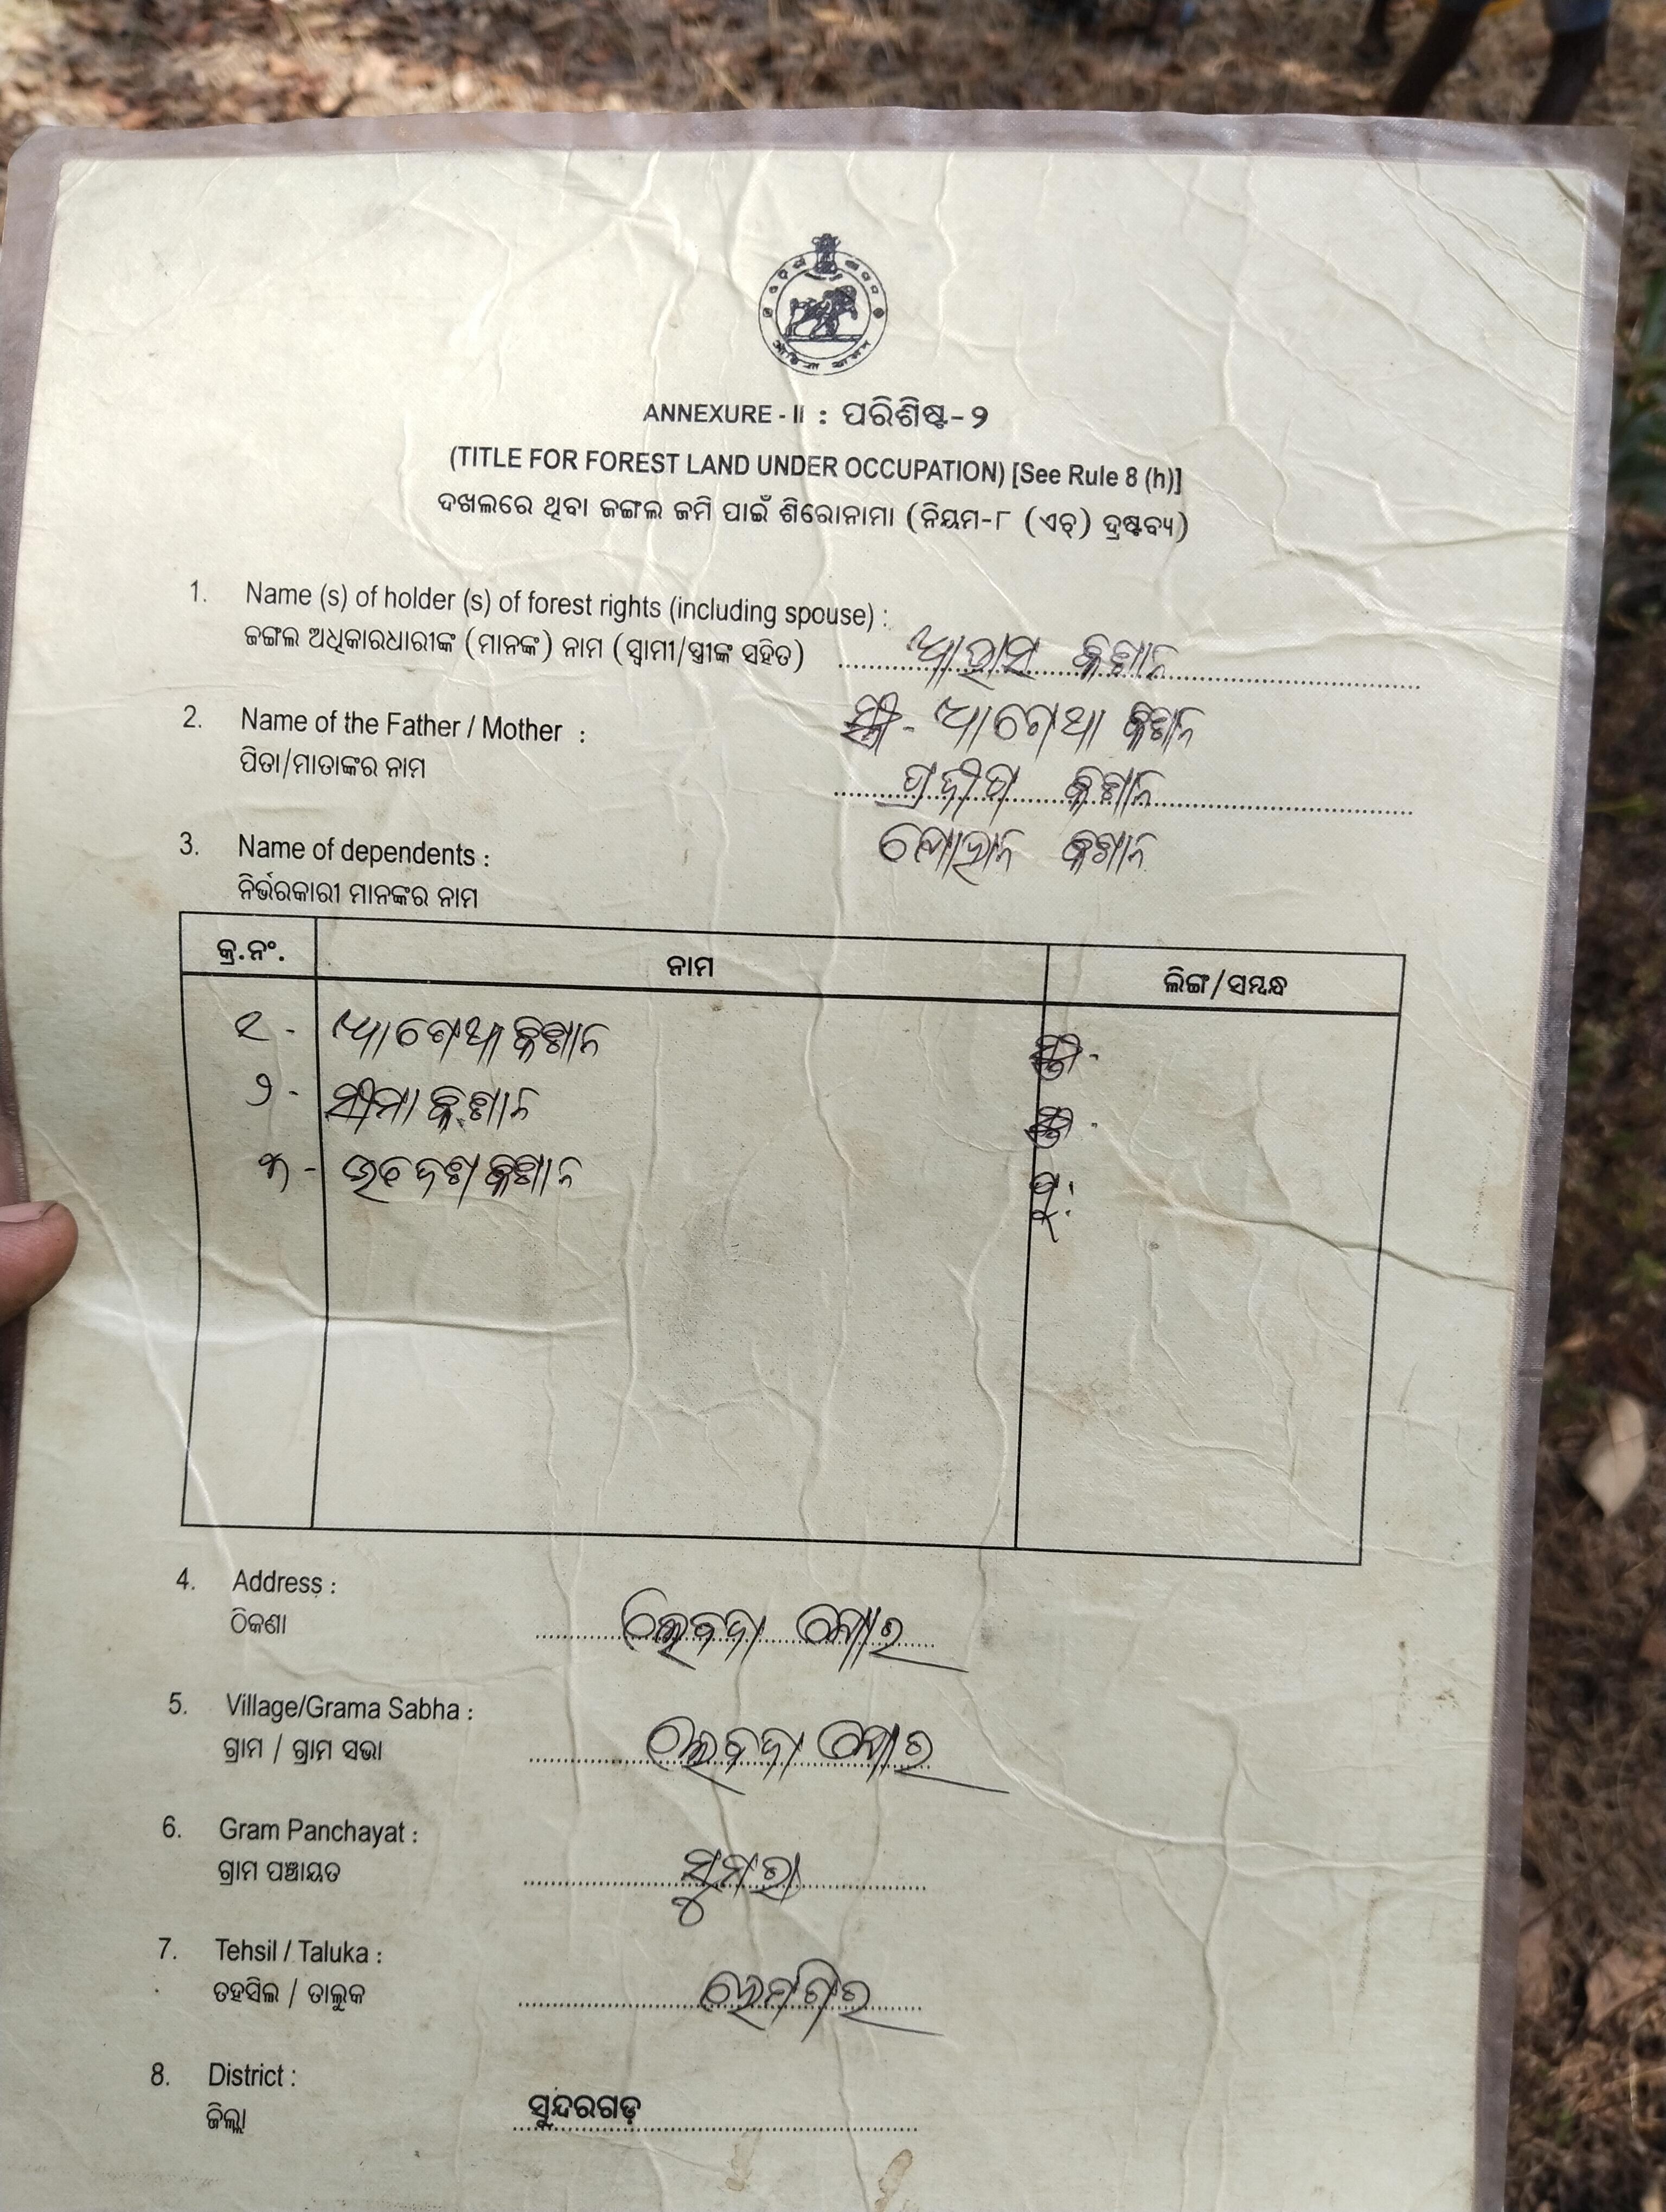 ANNEXURE - II : ପରିଶିଷ୍ଟ-୨
(TITLE FOR FOREST LAND UNDER OCCUPATION) [See Rule 8 (h)]
ଦଖଲରେ ଥିବା ଜଙ୍ଗଲ ଜମି ପାଇଁ ଶିରୋନାମା (ନିୟମ-୮ (ଏଚ୍) ଦ୍ରଷ୍ଟବ୍ୟ)
1. Name (s) of holder (s) of forest rights (including spouse) :
ଜଙ୍ଗଲ ଅଧିକାରଧାରୀଙ୍କ (ମାନଙ୍କ) ନାମ (ସ୍ୱାମୀ/ସ୍ତ୍ରୀଙ୍କ ସହିତ) କିଷାନ
2. Name of the Father / Mother : କିଷାନ
ପିତା/ମାତାଙ୍କର ନାମ ପ୍ରଦୀପ କିଷାନ
3. Name of dependents :
ନିର୍ଭରକାରୀ ମାନଙ୍କର ନାମ
କ୍ର.ନଂ. ନାମ ଲିଙ୍ଗ/ସମ୍ବନ୍ଧ
୧ - କିଷାନ
୨ - ସୀମା କିଷାନ
୩ - କିଷାନ ପୁ:
4. Address :
ଠିକଣା
5. Village/Grama Sabha :
ଗ୍ରାମ / ଗ୍ରାମ ସଭା
6. Gram Panchayat :
ଗ୍ରାମ ପଞ୍ଚାୟତ ସୁମରା
7. Tehsil / Taluka :
ତହସିଲ / ତାଲୁକ ହେମଗିର
8. District :
ଜିଲ୍ଲା ସୁନ୍ଦରଗଡ଼